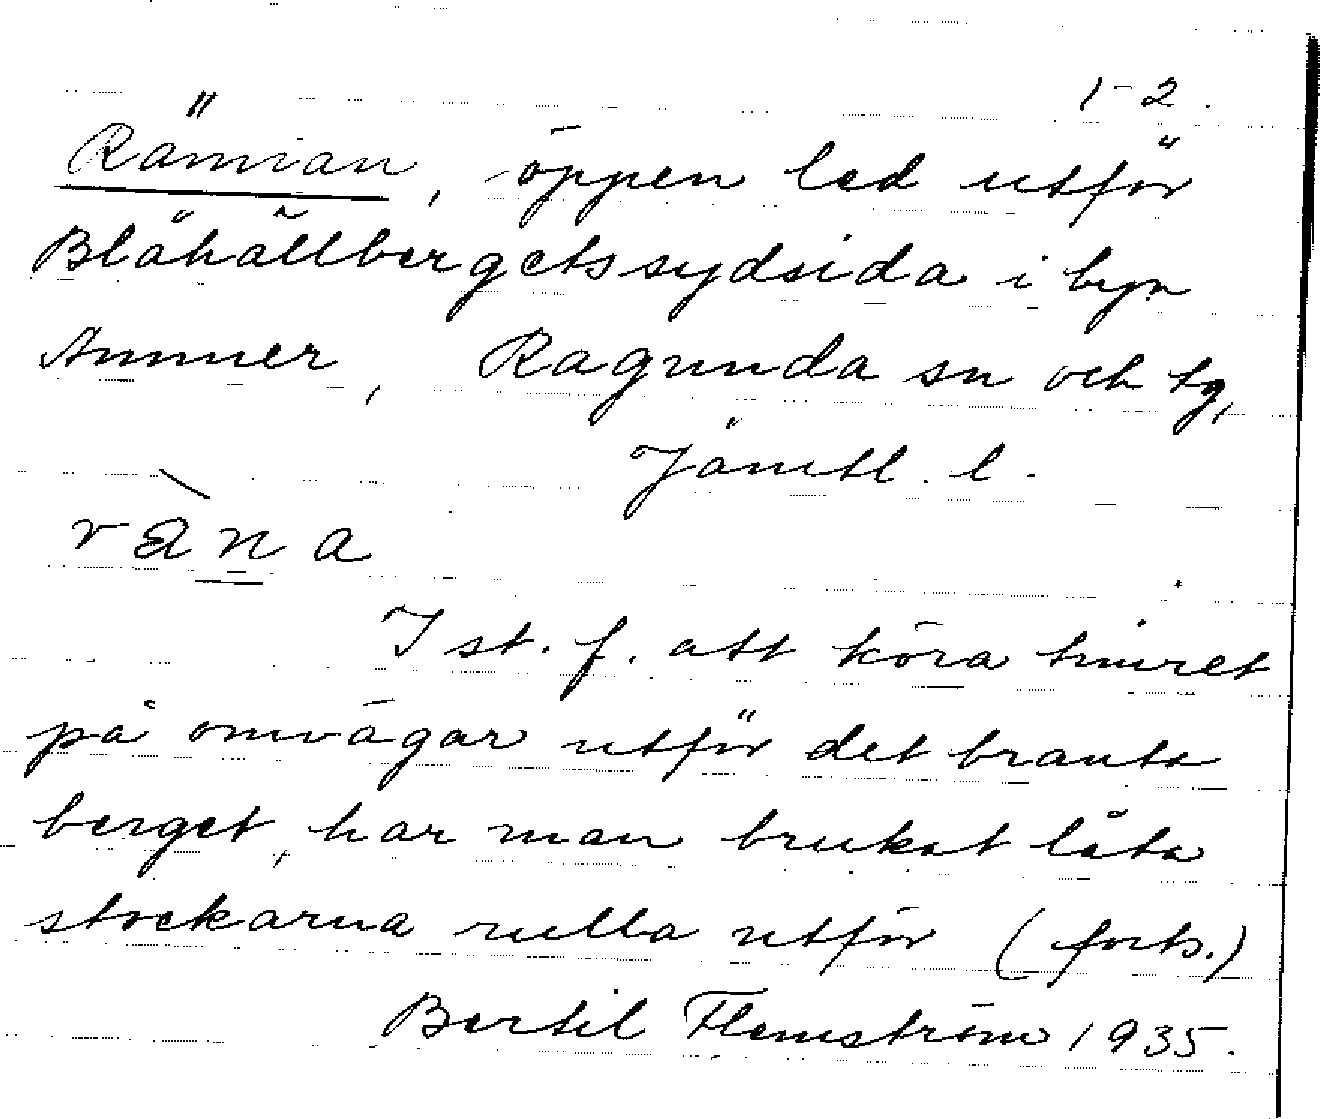 1-2.
Rämnan, öppen led utför
Blåhällbergets sydsida i byn
Ammer, Ragunda sn och tg,
Jämtl. l.
I st. f. att köra timret
på omvägar utför det branta
berget, har man brukat låta
stockarna rulla utför (forts.)
Bertil Flemström 1935.